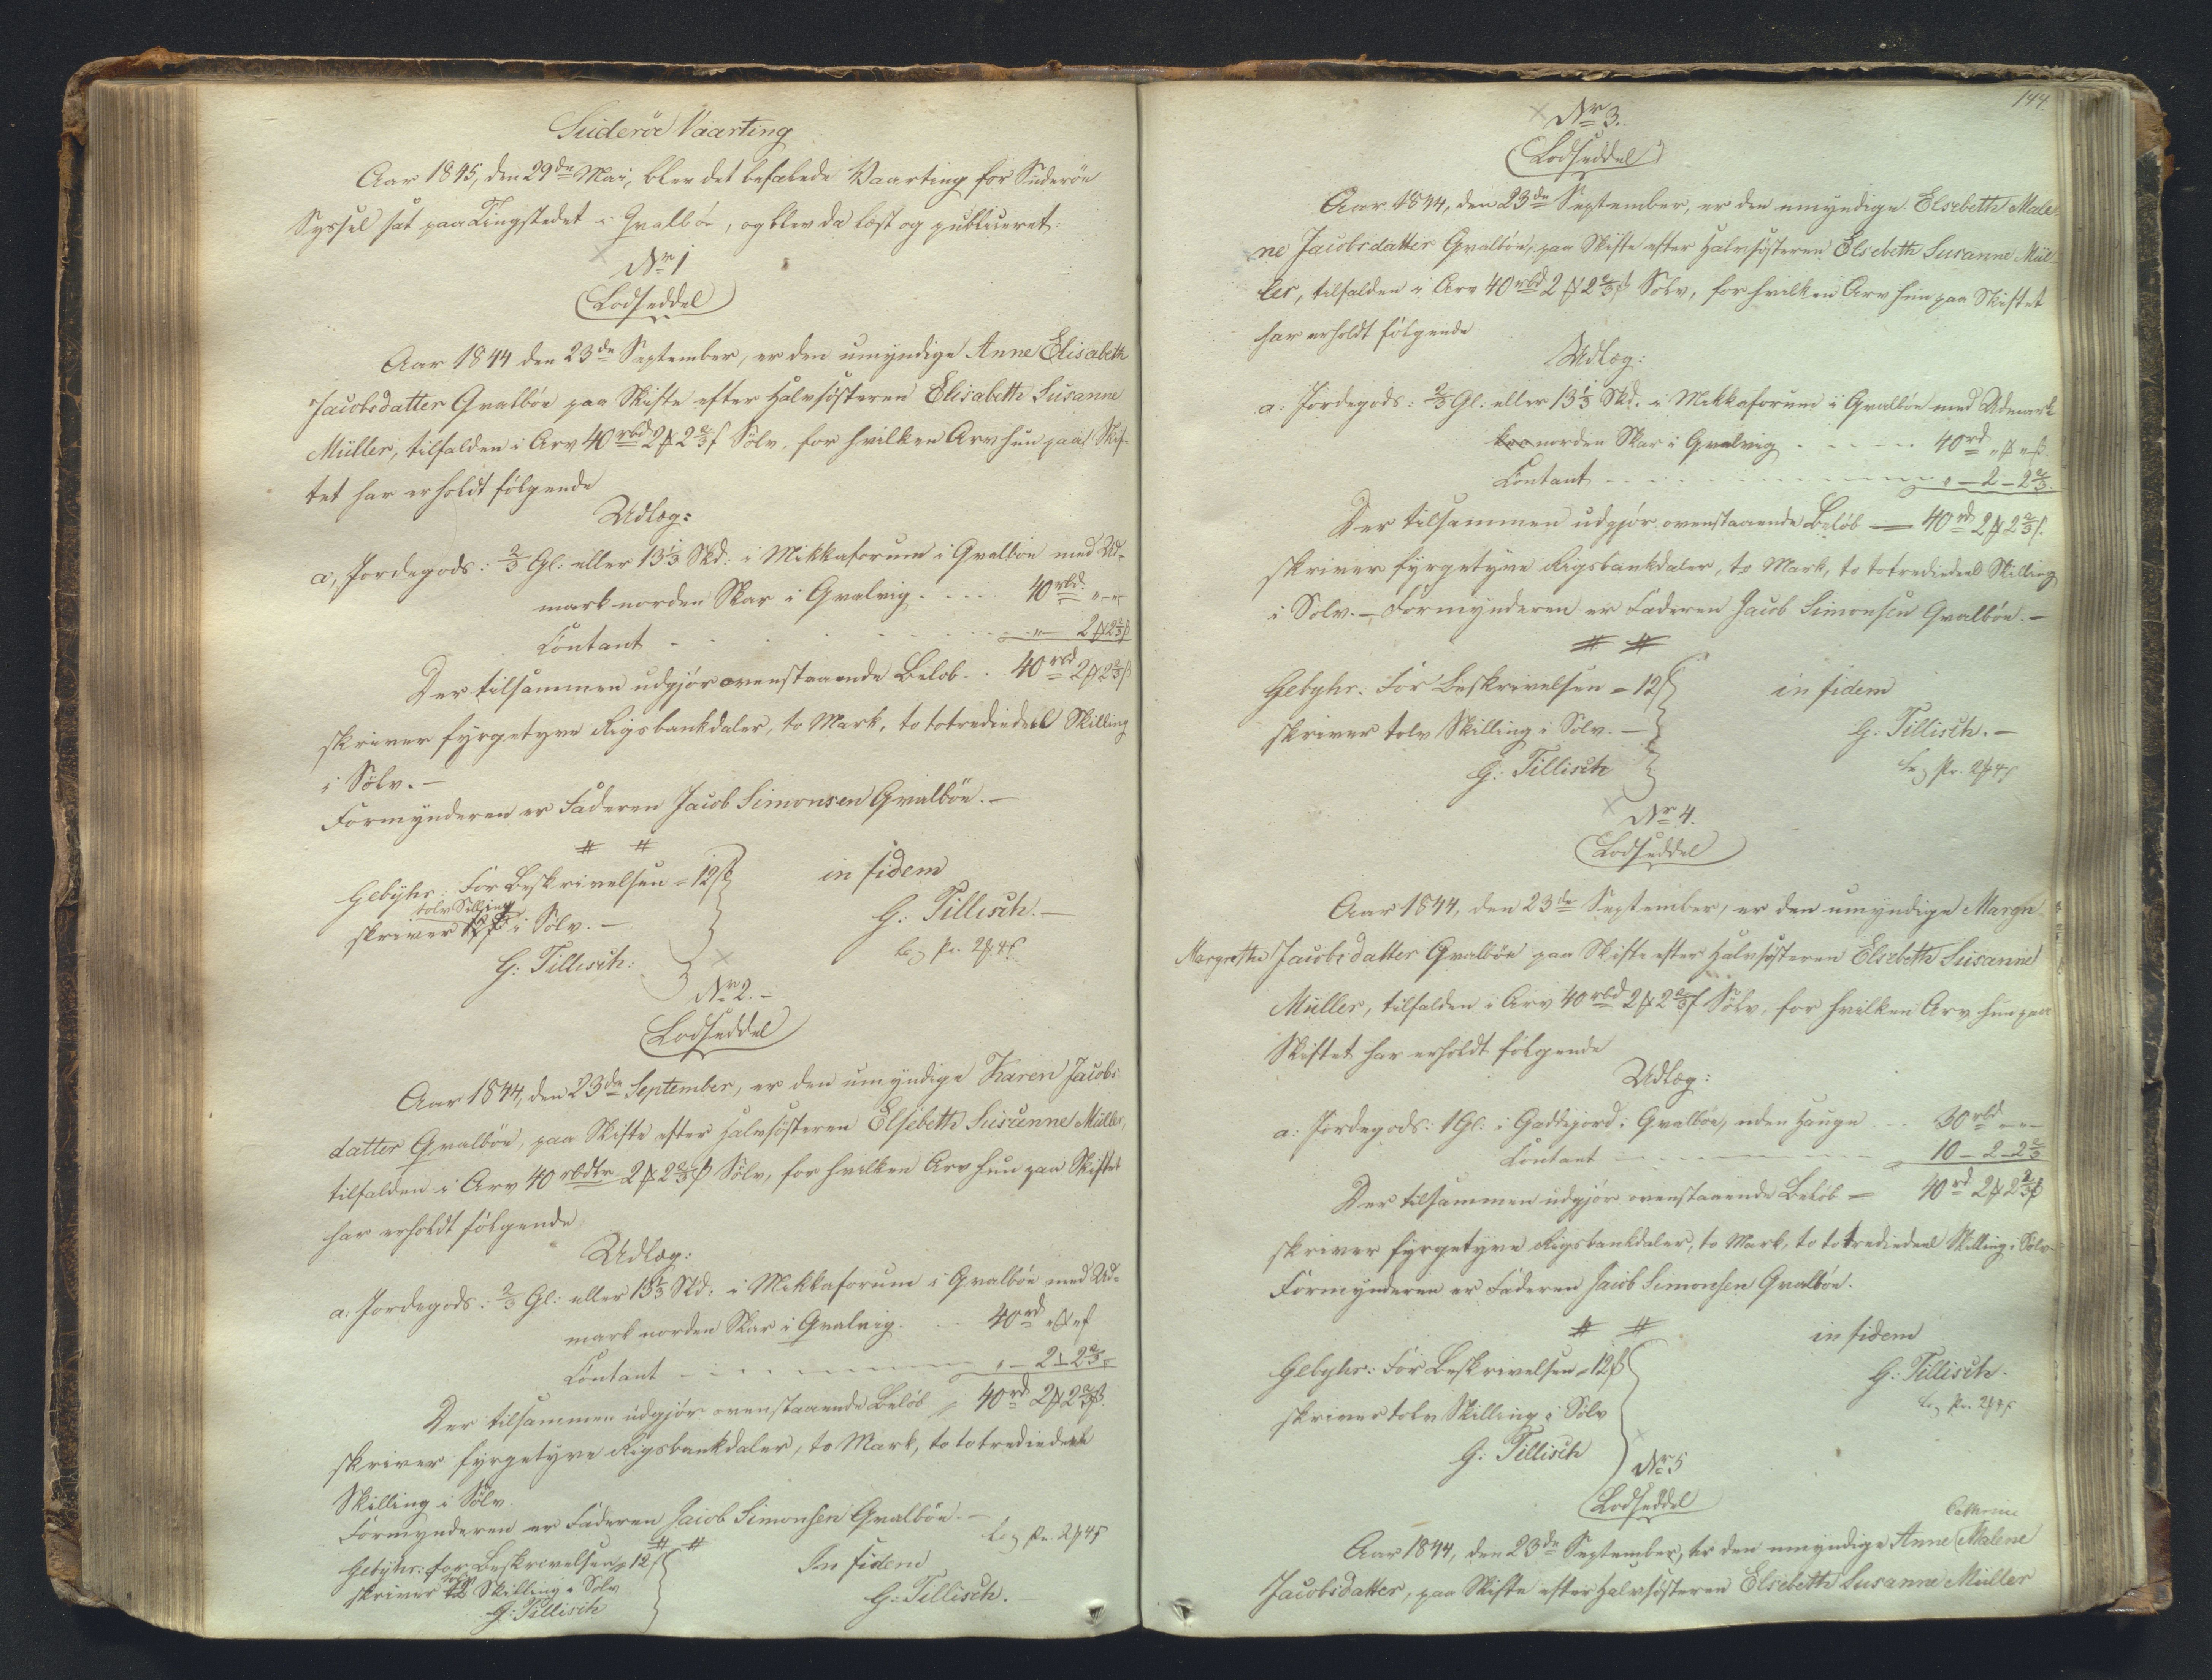 Suderöe Vaarting
Aar 1845, den 29de Mai, blev det befalede Vaarting for Suderöe
Syssel sat paa Tingstedet i Qvalböe, og blev da læst og publiceret:
Nr 1
Lodseddel
Aar 1844 den 23de September, er den umyndige Anne Elisabeth
Jacobsdatter Qvalböe paa Skifte efter Halvsösteren Elisabeth Susanne
Müller, tilfalden i Arv 40 rbd 2 ₰ 2 2/3 ß Sölv, for hvilken Arv hun paa Skif-
tet har erholdt fölgende
Udlæg:
a, Jordegods: 2/3 Gl: eller 13 1/3 Skd: i Mikkaforum i Qvalböe med Ud-
mark norden Skar i Qvalvig . . . . 40 rbd „ – „
Contant . . . . . „ 2 ₰ 2 2/3 ß
Der tilsammen udgjör ovenstaaende Belöb . . 40 rbd 2 ₰ 2 2/3 ß
skriver fyrgetyve Rigsbankdaler, to Mark, to totrediedeel Skilling
i Sölv. –
Formynderen er Faderen Jacob Simonsen Qvalböe. –
# #
Gebyhr: For Beskrivelsen = 12 ß
in fidem
tolv Skilling
skriver 12 ß i Sölv. –
G: Tillisch. –
G: Tillisch:
Nr 2. –
Lodseddel
Aar 1844, den 23de September, er den umyndige Karen Jacobs
datter Qvalböe, paa Skifte efter Halvsösteren Elsebeth Susanne Müller,
tilfalden i Arv 40 rbdlr 2 ₰ 2 2/3 ß Sölv, for hvilken Arv hun paa Skiftet
har erholdt fölgende
Udlæg:
a: Jordegods: 2/3 Gl: eller 13 1/3 Skd: i Mikkaforum i Qvalböe med Ud-
mark norden Skar i Qvalvig. . . 40 rd „ ₰ „ ß
Contant – – – – „ – 2 – 2 2/3
Der tilsammen udgjör ovenstaaende Belöb = 40 rd 2 ₰ 2 2/3 ß
skriver fyrgetyve Rigsbankdaler, to Mark, to totrediedeel
Skilling i Sölv.
Formynderen er Faderen Jacob Simonsen Qvalböe. –
# #
Gebyhr: for Beskrivelsen = 12 ß
In fidem
tolv
skriver 12 Skilling i Sölv
G: Tillisch.
G: Tillisch
144
Nr 3.
Lodseddel
Aar 1844, den 23de September, er den umyndige Elsebeth Male-
ne Jacobsdatter Qvalböe, paa Skifte efter Halvsösteren Elsebeth Susanne Mül-
ler, tilfalden i Arv 40 rbd 2 ₰ 2 2/3 ß Sölv, for hvilken Arv hun paa Skiftet
har erholdt fölgende
Udlæg:
a: Jordegods: 2/3 Gl: eller 13 1/3 Skd. i Mikkaforum i Qvalböe med Udmark
norden Skar i Qvalvig . . . . 40 rd „ ₰ „ ß.
Contant – – – – „ – 2 – 2 2/3.
Der tilsammen udgjör ovenstaaende Belöb — 40 rd 2 ₰ 2 2/3 ß.
skriver fyrgetyve Rigsbankdaler, to Mark, to totrediedeel Skilling
i Sölv. – Formynderen er Faderen Jacob Simonsen Qvalböe. –
# #
Gebyhr: For Beskrivelsen = 12 ß
in fidem
skriver tolv Skilling i Sölv. –
G: Tillisch. –
G: Tillisch
Nr 4.
Lodseddel
Aar 1844, den 23de September, er den umyndige Maren
Margrethe Jacobsdatter Qvalböe paa Skifte efter Halvsösteren Elsebeth Susanne
Müller, tilfalden i Arv 40 rbd 2 ₰ 2 2/3 ß Sölv, for hvilken Arv hun paa
Skiftet har erholdt fölgende
Udlæg:
a: Jordegods: 1 Gl: i Gaddigord i Qvalböe, uden Hauge . . 30 rbd „ – „ –
Contant – – – – 10 – 2 – 2 2/3
Der tilsammen udgjör ovenstaaende Belöb = 40 rd 2 ₰ 2 2/3 ß
skriver fyrgetyve Rigsbankdaler, to Mark, to totrediedeel Skilling i Sölv –
Formynderen er Faderen Jacob Simonsen Qvalböe.
# #
in fidem
Gebyhr: For Beskrivelsen = 12 ß
G: Tillisch.
skriver tolv Skilling i Sölv
G: Tillisch
Nr 5
Lodseddel
Cathrine
Aar 1844, den 23de September, er den umyndige Anne Malene
Jacobsdatter, paa Skifte efter Halvsösteren Elsebeth Susanne Müller